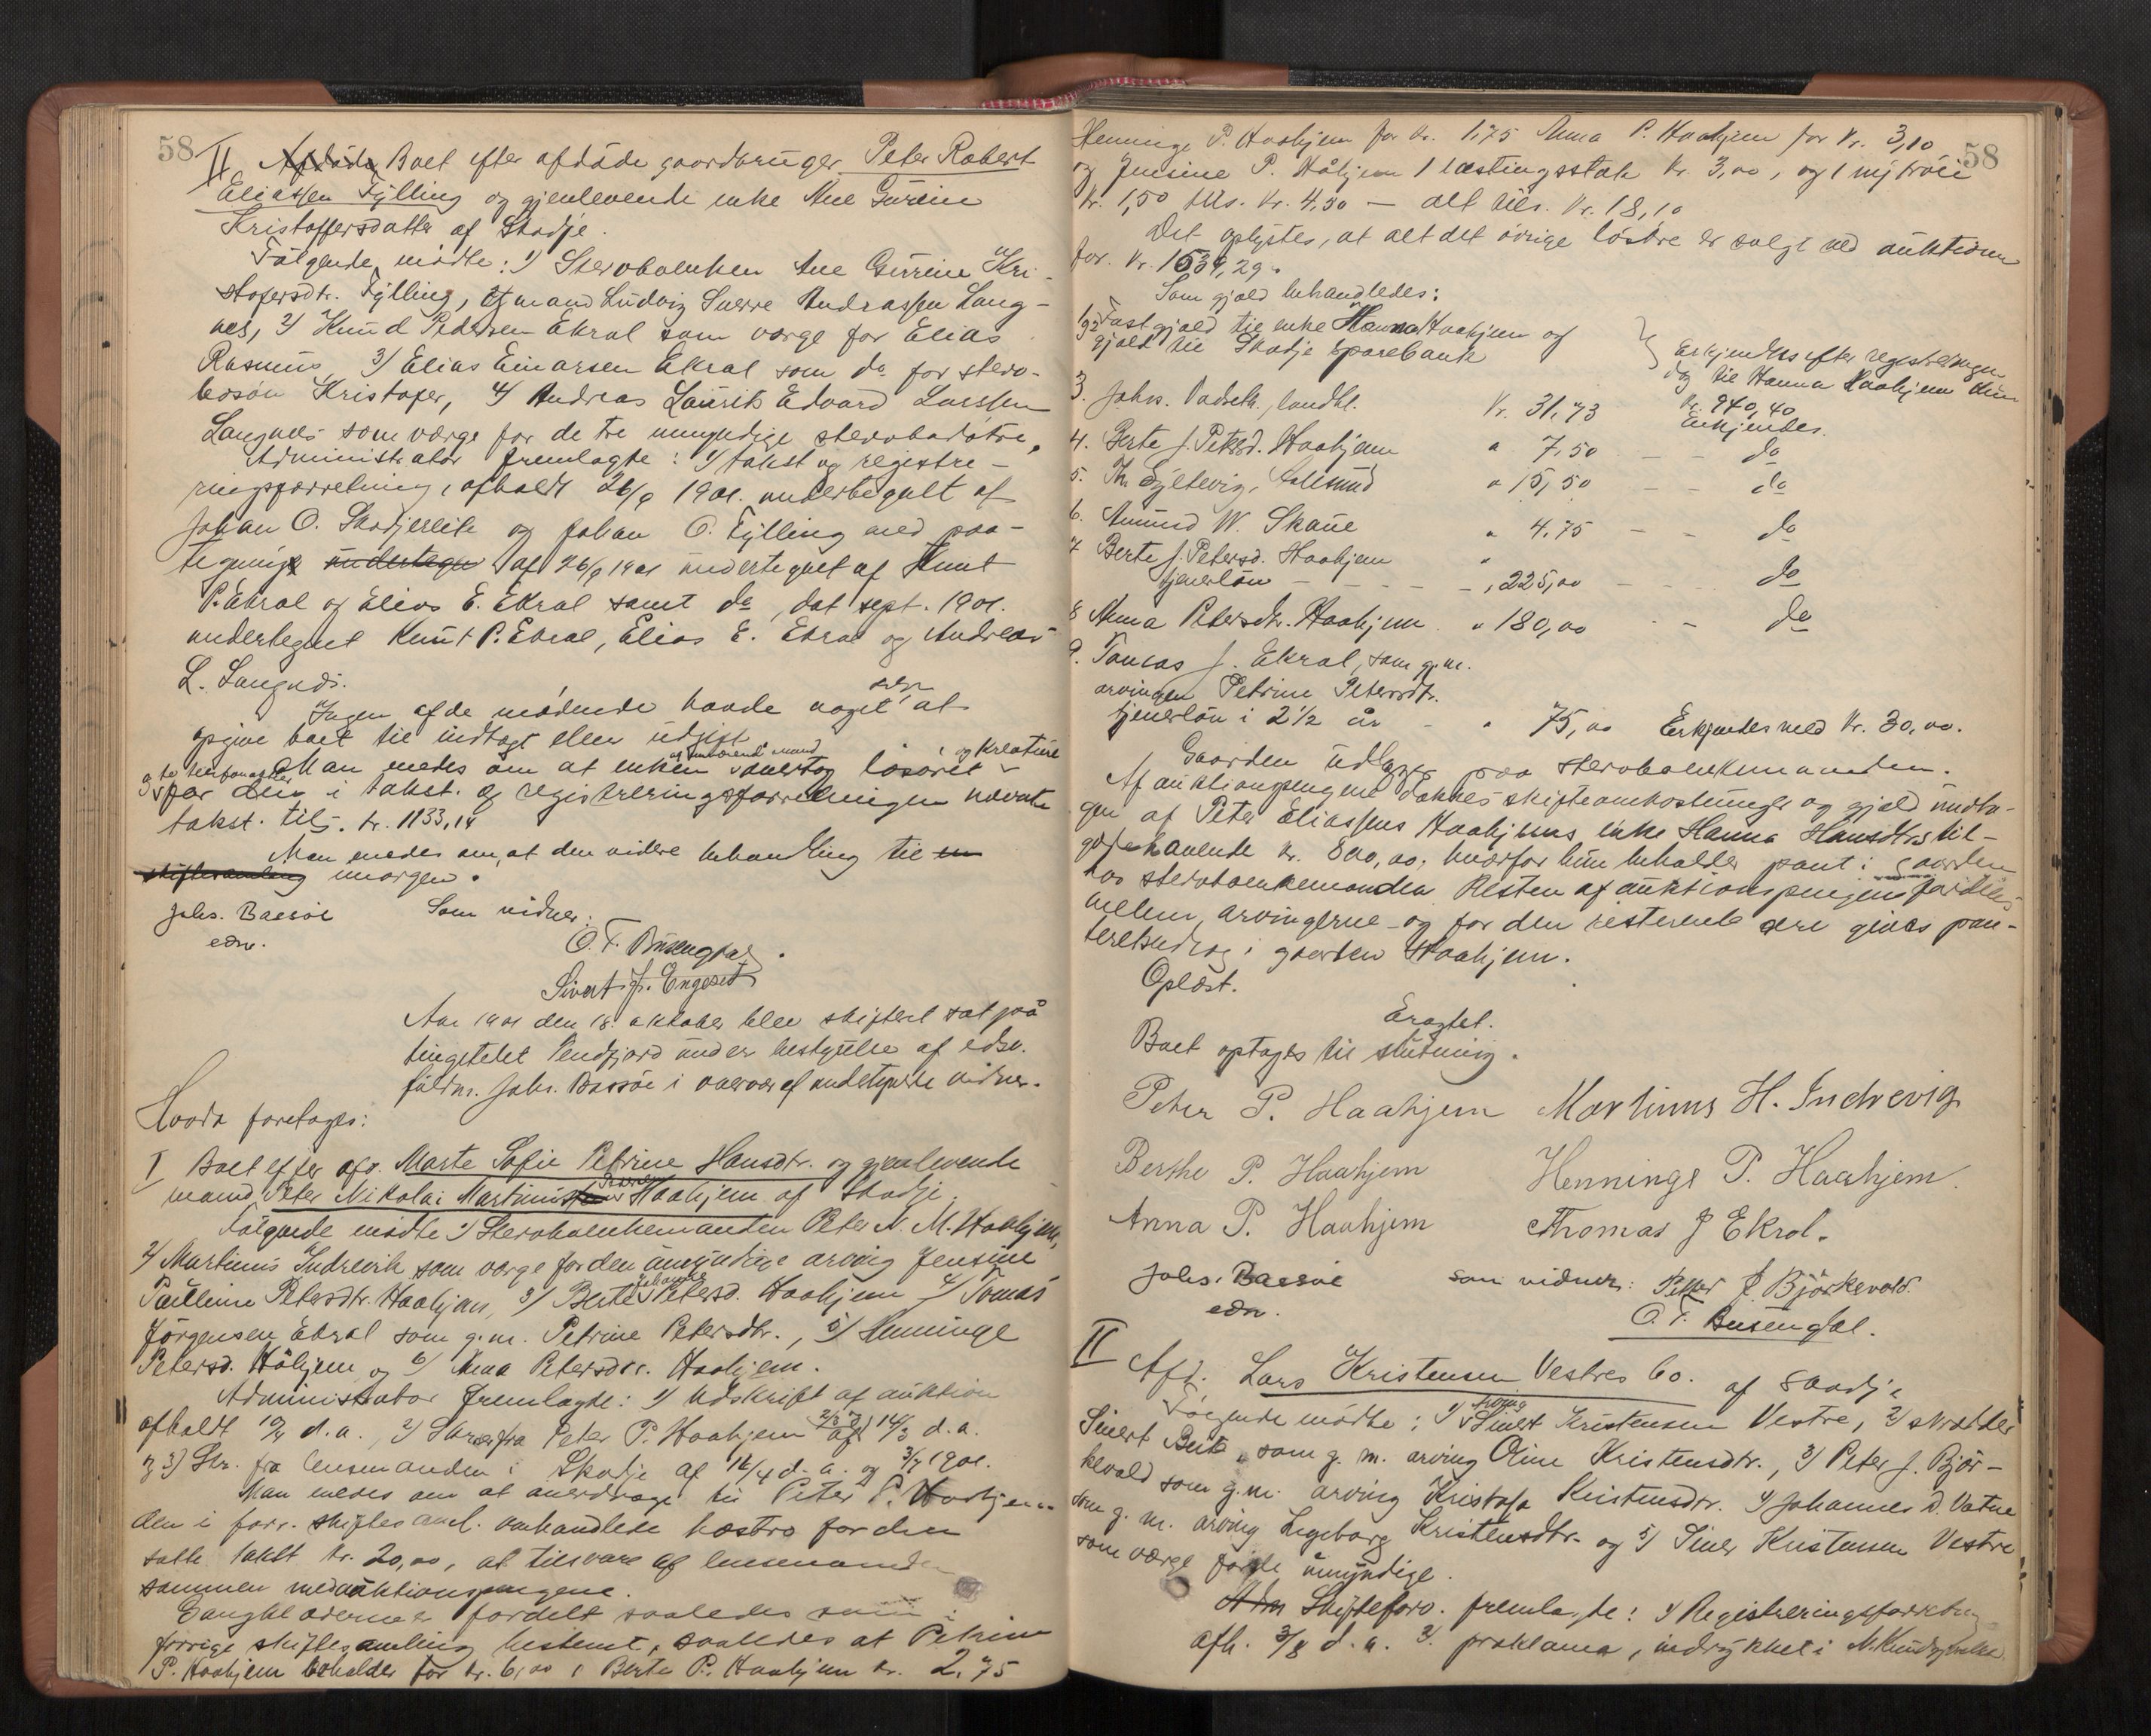 58
II Afdøde Boet efter afdøde gaardbruger Peter Robert
Eliassen Fylling og gjenlevende enke Ane Gurine
Kristoffersdatter af Skodje.
Følgende mødte: 1) Sterboenken Ane Gurine Kri-
stofersdr. Fylling, Ludvig Sverre Andreassen Lang-
nes, 2) Knud Pedersen Ekrol som værge for Elias
Rasmus, 3) Elias Einarsen Ekrol som do for sterv-
bosøn Kristofer, 4) Andreas Laurits Edvard Larssen
Langnes som værge for de tre umyndige stervbodøtre.
Administrator fremlagte: 1) takst og registre-
ringsforretning, afholdt 26/9 1901. underbegnet af
Johan O. Skodjereite og Johan O. Fylling med paa-
tegning undertegn af 26/9 1901 undertegnet af Knut
P. Ekrol og Elias E. Ekrol samt do, dat sept. 1901.
undertegnet Knut P. Ekrol, Elias E. Ekrol og Andreas
L. Langnes.
Ingen af de mødende havde noget at
opgive boet til indtægt eller udgift
Man enedes om at enken overtog løsøret og kreature
for den i takst. og registreringsforretningen nævnte
takst. tils. kr. 1133,14
Man enedes om, at den videre behandling til en
skiftesamling imorgen.
Johs. Bassøe Som vidner:
edsv. O. T. Busengdal
Sivert J. Engeset
Aar 1901 den 18. oktober blev skifteret sat på
tingstedet Tendfjord under bestyrelse af edsv.
fuldm. Johs. Bassøe i overvær af undertegnede vidner.
Hvorda foretoges:
I Boet efter afd. Marte Sofie Petrine Hansdtr. og gjenlevende
mand Peter Nikolai Martinus Haahjem af Skodje.
Følgende mødte 1) Sterboenkemanden Peter N. M. Haahjem,
2) Martinus Indrevik som værge for den umyndige arving Jensine
Pauline Petersdtr. Haahjem, 3) Berte Johanne Petersd. Haahjem 4) Tomas
Jørgensen Ekrol som g.m. Petrine Petersdtr., 5) Henninge
Petersd. Håhjem og 6) Anna Petersdtr. Haahjem.
Administrator fremlagte: 1) Udskrift af auktion
afholdt d.a., 2) Skr. fra Peter P. Haahjem af 14/3 d.a.
og 3) Skr. fra lensmanden i Skodje af 16/4 d.a. og 3/7 1901.
Man enedes om at overdrage til Peter P. Haahjem
den i forr. skiftesaml. omhandlede for den
satte takst kr. 20,00, at tilsvare af lensmanden
sammen med auktionspengene.
Gangklæderne er fordelt saaledes som i
forrige skiftesamling bestemt, saaledes at Petrine
P. Haahjem beholder for kr. 6,00, Berte P. Haahjem kr. 2,75
58
Henninge P. Haahjem for kr. 1,75 Anna P. Haahjem for kr. 3,10
og Jensine P. Håhjem 1 læstingsstak kr. 3,00, og 1 ny trøie
kr. 1,50 tils. kr. 4,50 – alt tils. kr. 18,10
Det oplystes, at alt det øvrige løsøre er solgt ved auktionen
for kr. 1639,29.
Som gjæld behandledes:
1 og 2 Fast gjæld til enke Hanna Haahjem og
gjæld til Skodje sparebank } Erkjendes efter registreringen
dog til Hanna Haahjem kun
kr. 940,40
3. Johs. Vadset, landhl. kr. 31,73 Erkjendes.
4. Berte J. Petersd. Haahjem " 7,50 – – do
5. Th. Gjeltevig, Aalesund " 15,50 – – do
6. Amund W. Skaue " 4,75 – – do
7 Berte J. Petersd. Haahjem
tjenerløn – – – – " 225,00 – – do
8 Anna Petersdtr. Haahjem " 180,00 – – do
9. Tomas J. Ekrol, som g.m.
arvingen Petrine Petersdtr.
tjenerløn i 2 1/2 år – " 75,00 Erkjendes med kr. 30,00.
Gaarden udlægges paa stervboenkemanden.
Af auktionspengene dækkes skifteomkostninger og gjæld undta-
gen af Peter Eliassens Haahjems enke Hanna Hansdtrs til-
godehavende kr. 800,00, hvorfor hun beholder pant i gaarden
hos stervboenkemanden. Resten af auktionspengene fordeles
mellem arvingerne og for den resterende arv gives pan-
teretsudlæg i gaarden Haahjem.
Oplæst.
Eragtet.
Boet optages til slutning.
Peter P. Haahjem Martinus H. Indrevig
Berthe P. Haahjem Henninge P. Haahjem.
Anna P. Haahjem Thomas J Ekrol.
Johs. Bassøe som vidner: Petter J. Björkevold.
edsv. O. T. Busengdal.
II Afd. Lars Kristensen Vestres bo. af Skodje
Følgende mødte: 1) arving Sivert Kristensen Vestre, 2) skrædder
Sivert Beite, som g.m. arving Oline Kristensdtr., 3) Peter J. Bjør-
kevold som g.m. arving Kristofa Kristensdtr. 4) Johannes D. Vatne
som g.m. arving Ingeborg Kristensdtr. og 5) Siver Kristensen Vestre
som værge for de umyndige.
Adm Skifteforv. fremlagte: 1) Registreringsforretning
afh. 3/8 d.a. 2. proklama, indrykket i N. Kundgjørelse